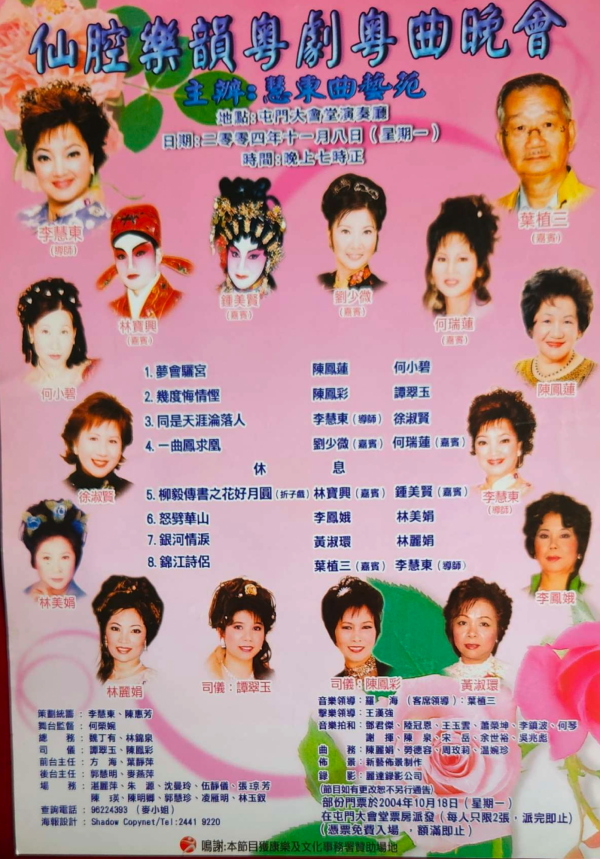 仙腔樂韻粵劇粵曲晚會
主辦:慧東曲藝苑
地點:屯門大會堂演奏廳
日期:二零零四年十一月八日(星期一)
時間:晚上七時正
李慧東
(導師)
葉植三
(嘉賓)
林寶興
(嘉賓)
鍾美賢
(嘉賓)
劉少微
(嘉賓)
何瑞蓮
(嘉賓)
何小碧
陳鳳蓮
1. 夢會驪宮 陳鳳蓮 何小碧
2. 幾度悔情慳 陳鳳彩 譚翠玉
3. 同是天涯淪落人 李慧東(導師) 徐淑賢
4. 一曲鳳求凰 劉少微(嘉賓) 何瑞蓮(嘉賓)
休 息
5. 柳毅傳書之花好月圓(折子戲) 林寶興(嘉賓) 鍾美賢(嘉賓)
6. 怒劈華山 李鳳娥 林美娟
7. 銀河情淚 黃淑環 林麗娟
8. 錦江詩侶 葉植三(嘉賓) 李慧東(導師)
徐淑賢
李慧東
(導師)
林美娟
李鳳娥
林麗娟
司儀:譚翠玉
司儀:陳鳳彩
黃淑環
策劃統籌 : 李慧東、陳惠芳
舞台監督 : 何榮婉
總 務 : 魏丁有、林錦泉
司 儀 : 譚翠玉、陳鳳彩
前台主任 : 方 海、葉靜萍
後台主任 : 郭慧明、麥燕萍
場 務 : 湛麗萍、朱 源、沈曼玲、伍靜儀、張琼芳
陳 瑛、陳明卿、郭慧珍、凌雁明、林玉釵
查詢電話 : 96224393 (麥小姐)
海報設計 : Shadow Copynet/Tel:2441 9220
音樂領導 : 羅 海 (客席領導):葉植三
擊樂領導 : 王漢強
音樂拍和 : 鄧君傑、陸冠恩、王玉雲、蕭榮坤、李鎮波、何琴
謝 揮、陳 泉、宋 岳、余世裕、吳兆彪
曲 務 : 陳麗娟、勞德容、周玫莉、溫婉珍
佈 景 : 新藝佈景制作
錄 影 : 麗達錄影公司
(節目如有更改恕不另行通告)
部份門票於2004年10月18日(星期一)
在屯門大會堂票房派發(每人只限2張,派完即止)
(憑票免費入場,額滿即止)
鳴謝:本節目獲康樂及文化事務署贊助場地